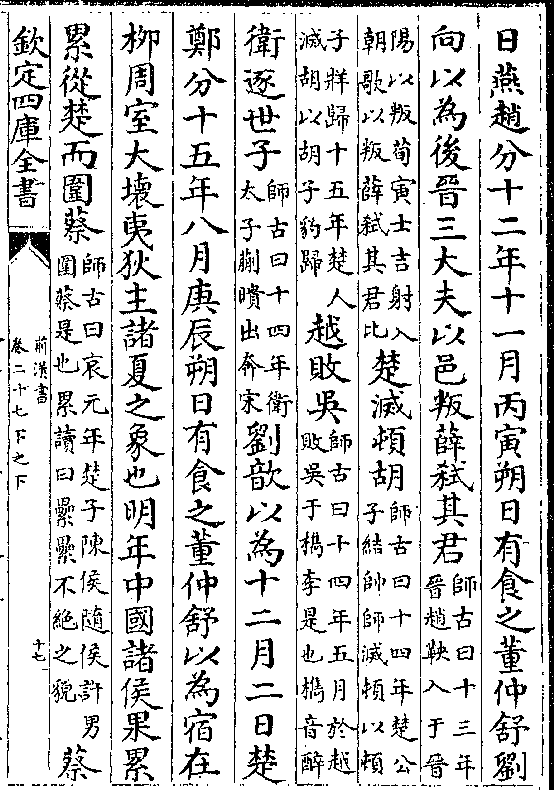 日燕趙分十二年十一月丙寅朔日有食之董仲舒劉
向以為後晉三大夫以邑叛薛弑其君師古曰十三年晉趙鞅入于晉
陽以叛荀寅士吉射入朝歌以叛薛弑其君比楚滅頓胡師古曰十四年楚公子結帥師滅頓以頓
子牂歸十五年楚人滅胡以胡子豹歸越敗吳師古曰十四年五月於越敗吳于檇李是也檇音醉
衛逐世子師古曰十四年衛太子蒯聵出奔宋劉歆以為十二月二日楚
鄭分十五年八月庚辰朔日有食之董仲舒以為宿在
柳周室大壞夷狄主諸夏之象也明年中國諸侯果累
累從楚而圍蔡師古曰哀元年楚子陳侯隨侯許男圍蔡是也累讀曰纍纍不絶之貌蔡
欽定四庫全書
前漢書
卷二十七下之下
十七